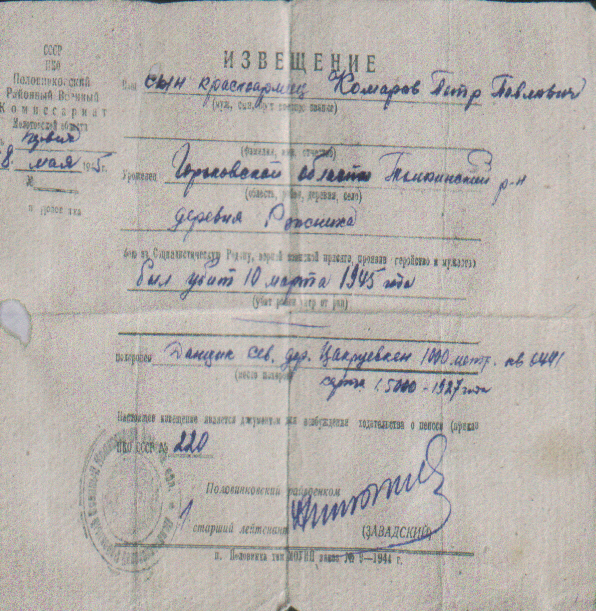 СССР
НКО
Половинковский
Районный Военный
Комиссариат
Молотовской области
8 мая 1945 г.
№
п. Половинка
ИЗВЕЩЕНИЕ
Ваш сын красноармеец Комаров Петр Павлович
(муж, сын, брат, военное звание)
(фамилия, имя, отчество)
Уроженец Горьковской области Тонкинский р-н
(область, район, деревня, село)
деревня
бою за Социалистическую Родину, верный воинской присяге, проявив геройство и мужество
был убит 10 марта 1945 года
(убит, ранен, умер от ран)
похоронен Данциг сев. дер. 1000 метр. кв 6441
(место похорон)
карта 1.5000-1927 года
Настоящее извещение является документом для возбуждения ходатайства о пенсии (приказ
НКО СССР № 220
Половинковский райвоенком
1 старший лейтенант
(ЗАВАДСКИЙ)
п. Половинка тип. заказ № 9-1944 г.